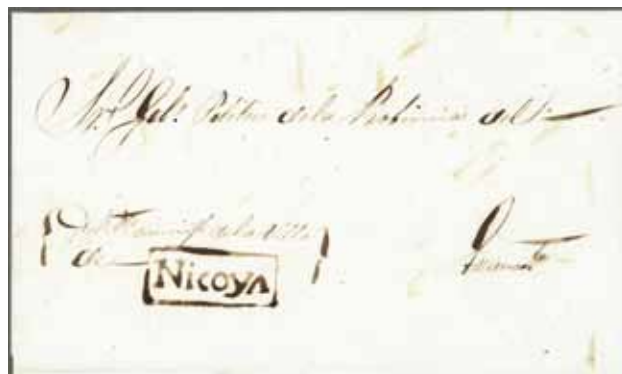 Sr. Gefe Politico de la Provincia del
Del Municip. de la Villa
de NICOYA